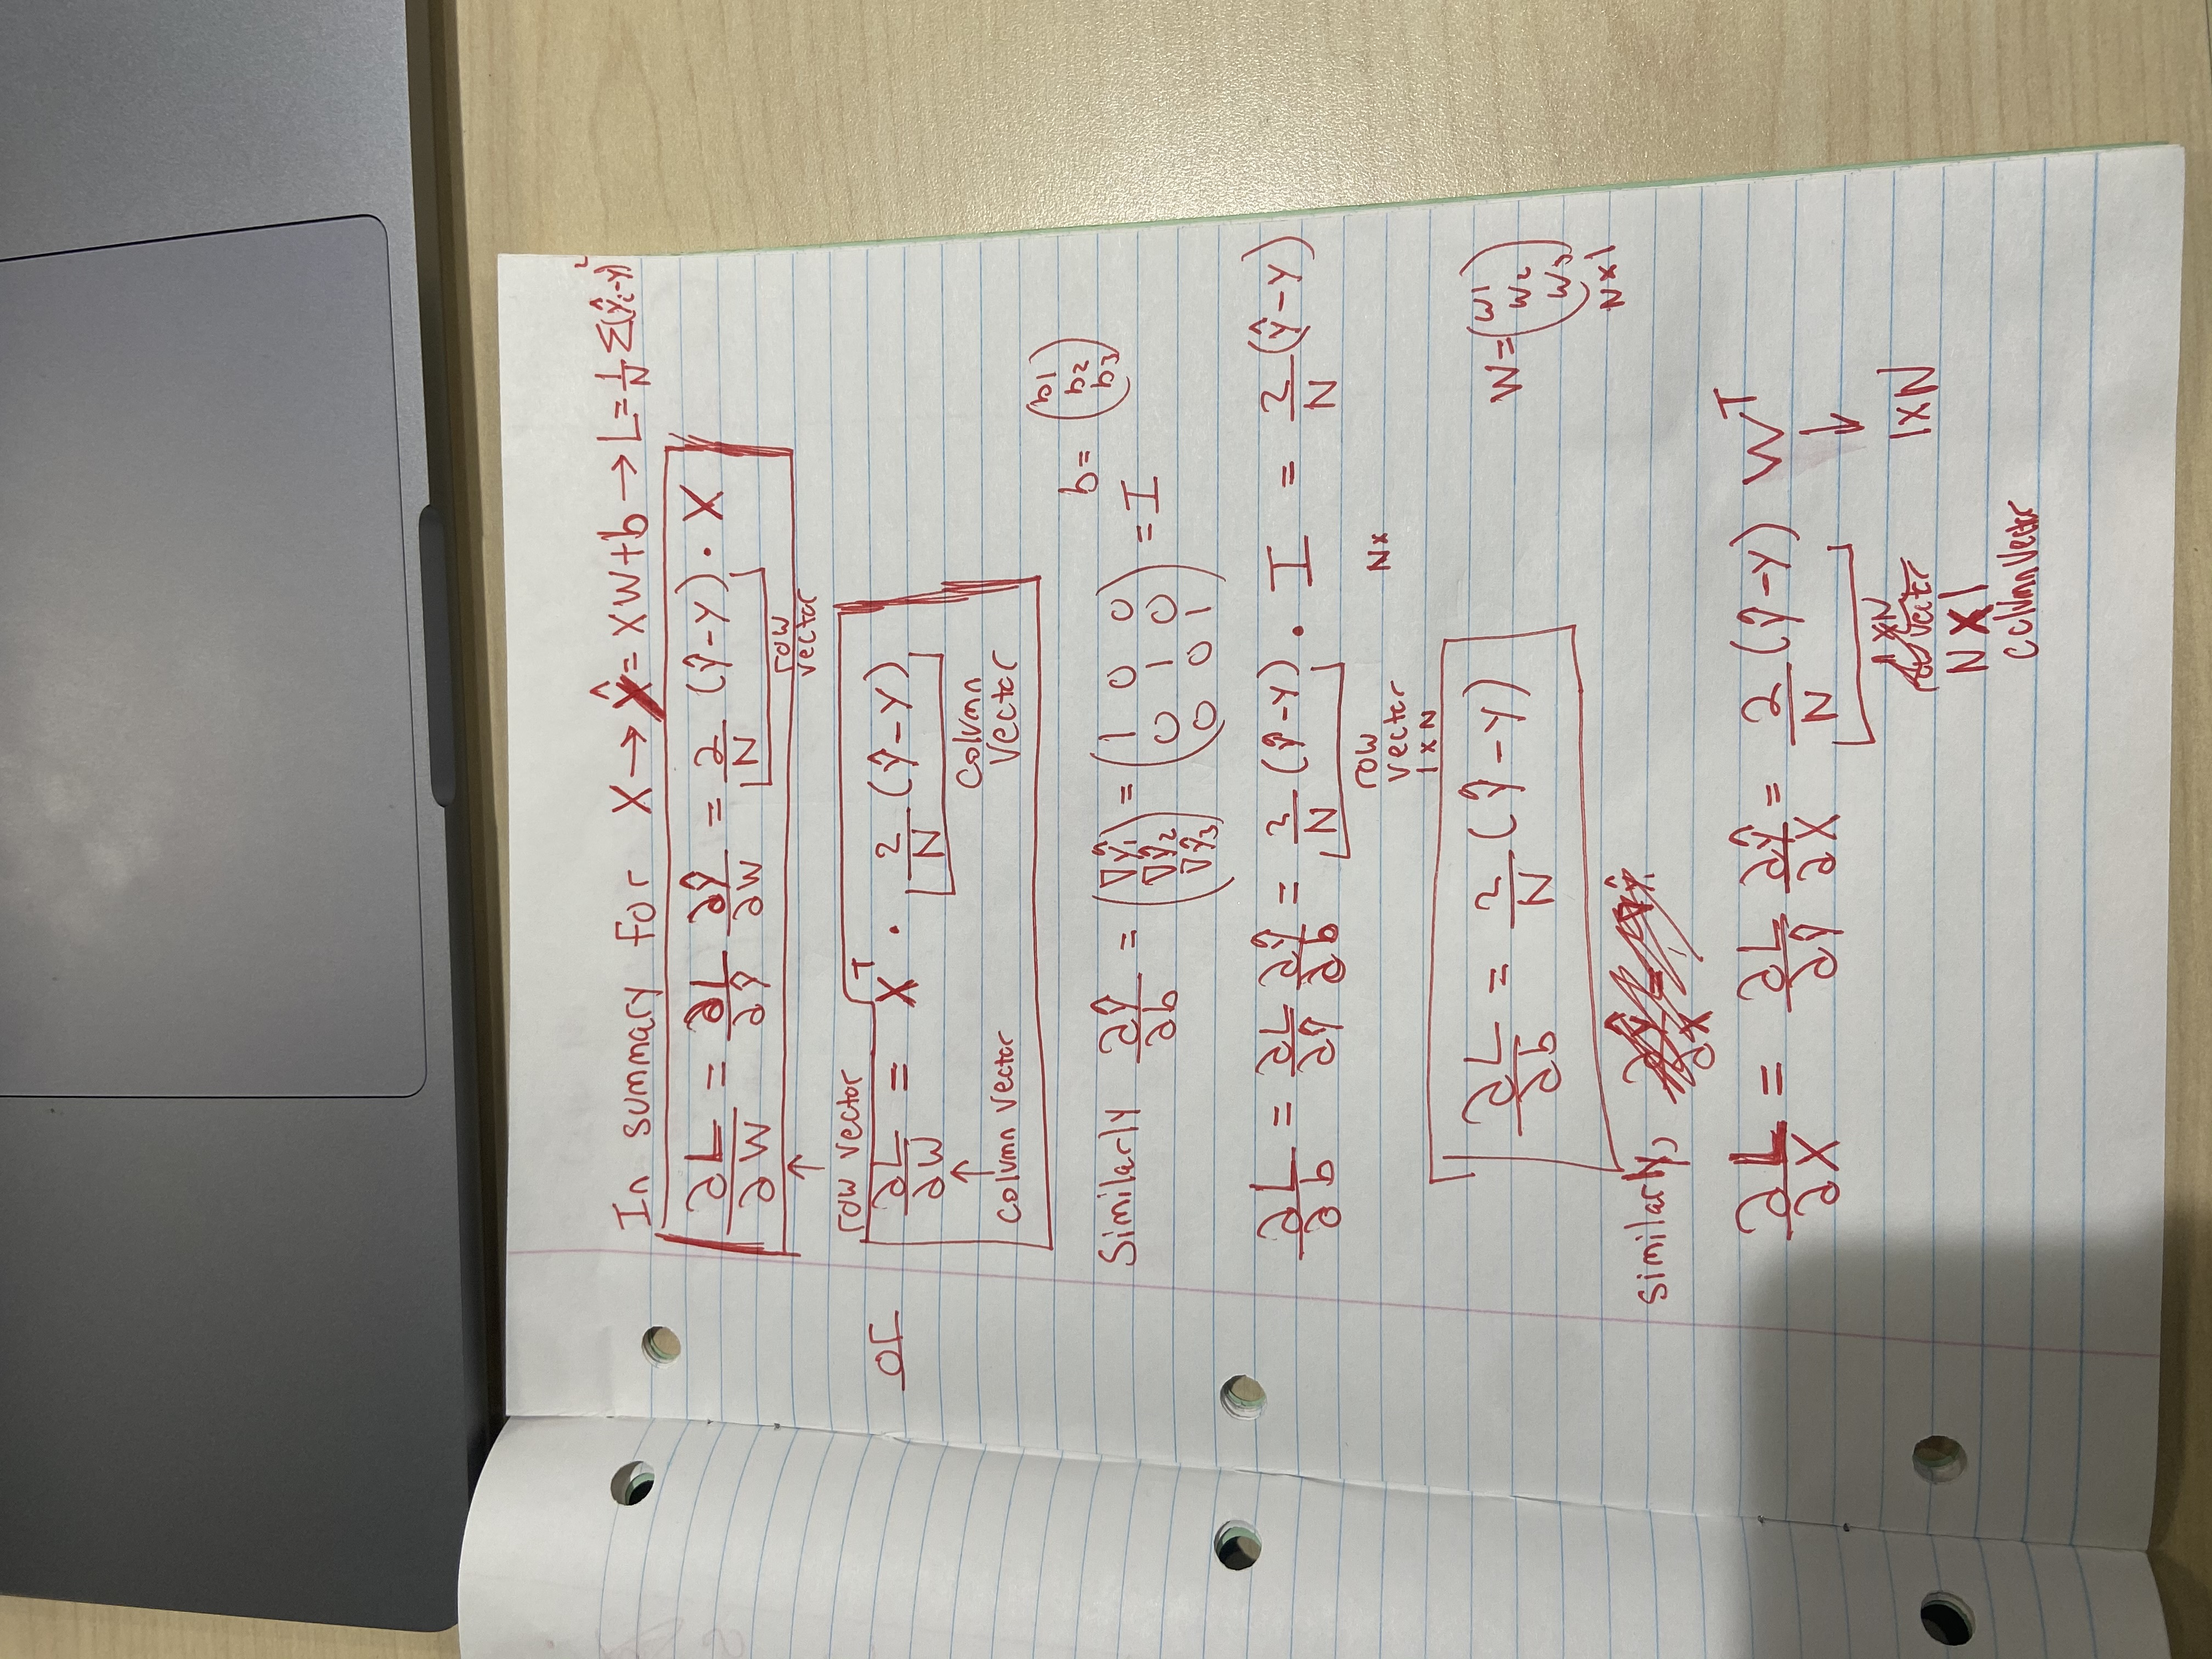 In summary for X → Ŷ = XW+b → L = 1/N Σ(ŷᵢ-y)²
∂L/∂W = ∂L/∂Ŷ ∂Ŷ/∂W = 2/N (Ŷ-Y) · X
row vector
row vector
or ∂L/∂W = Xᵀ · 2/N (Ŷ-Y)
column vector
column vector
b = (b1 b2 b3)
Similarly ∂Ŷ/∂b = (∇ŷ₁ ∇ŷ₂ ∇ŷ₃) = (1 0 0 0 1 0 0 0 1) = I
∂L/∂b = ∂L/∂Ŷ ∂Ŷ/∂b = 2/N (Ŷ-Y) · I = 2/N (Ŷ-Y)
row vector 1×N
N×
∂L/∂b = 2/N (Ŷ-Y)
W = (w1 w2 w3)
N×1
similarly,
∂L/∂X = ∂L/∂Ŷ ∂Ŷ/∂X = 2/N (Ŷ-Y) Wᵀ
1×N
row vector
↓
1×N
N×1
column vector